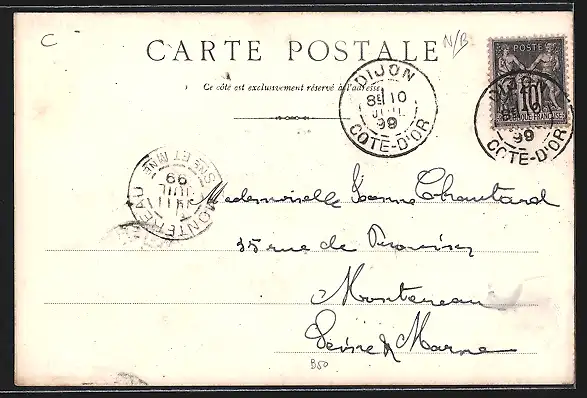 C
N/B
CARTE POSTALE
Ce côté est exclusivement réservé à l'adresse
DIJON
8E 10
JUIL
99
COTE-D'OR
POSTE
10
99
COTE-D'OR
MONTEREAU
SNE ET MNE
11
JUIL
99
Mademoiselle Jeanne Chautard
35 rue de Provins
Montereau
Seine & Marne
B50